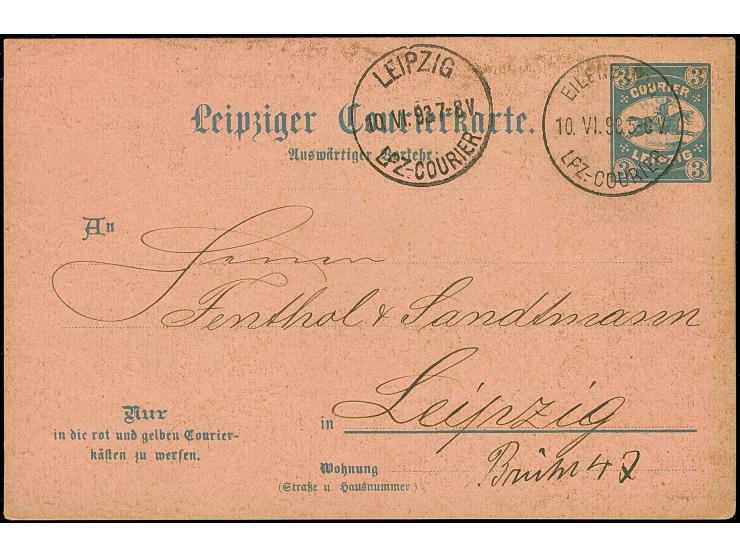 LEIPZIG
10. VI. 93 7-8 V.
LPZ.-COURIER
10. VI. 93 5-6 V.
LPZ.-COURIER
3 3
COURIER
LEIPZIG
3 3
Leipziger Courierkarte.
Auswärtiger Verkehr.
An
Herrn
Fenthol & Sandtmann
in Leipzig
Nur
in die rot und gelben Courier-
kästen zu werfen.
Wohnung Brühl 47
(Straße u. Hausnummer.)